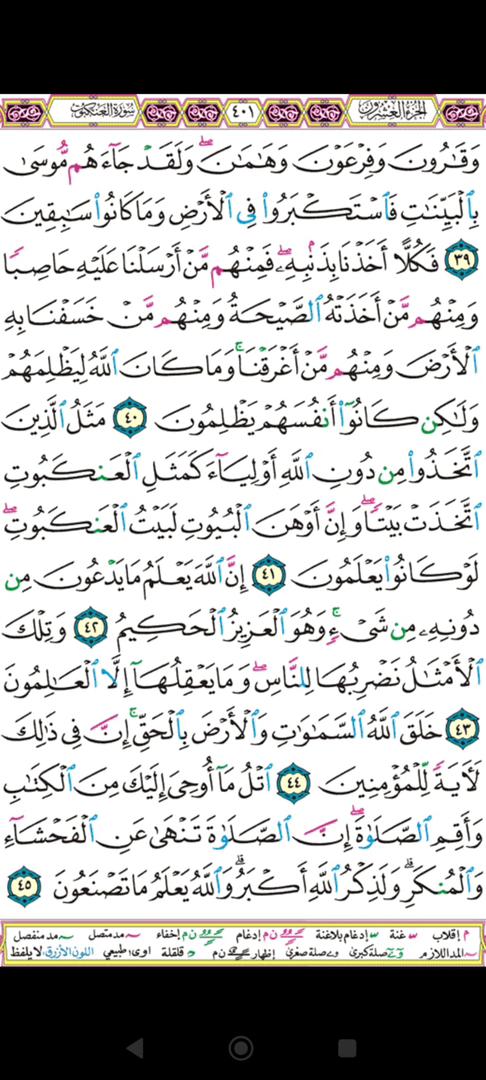 سورة العنكبوت ٤٠١ الجزء العشرون
وَقَٰرُونَ وَفِرْعَوْنَ وَهَٰمَٰنَ ۖ وَلَقَدْ جَآءَهُم مُّوسَىٰ
بِٱلْبَيِّنَٰتِ فَٱسْتَكْبَرُوا۟ فِى ٱلْأَرْضِ وَمَا كَانُوا۟ سَٰبِقِينَ
٣٩ فَكُلًّا أَخَذْنَا بِذَنۢبِهِۦ ۖ فَمِنْهُم مَّنْ أَرْسَلْنَا عَلَيْهِ حَاصِبًا
وَمِنْهُم مَّنْ أَخَذَتْهُ ٱلصَّيْحَةُ وَمِنْهُم مَّنْ خَسَفْنَا بِهِ
ٱلْأَرْضَ وَمِنْهُم مَّنْ أَغْرَقْنَا ۚ وَمَا كَانَ ٱللَّهُ لِيَظْلِمَهُمْ
وَلَٰكِن كَانُوٓا۟ أَنفُسَهُمْ يَظْلِمُونَ ٤٠ مَثَلُ ٱلَّذِينَ
ٱتَّخَذُوا۟ مِن دُونِ ٱللَّهِ أَوْلِيَآءَ كَمَثَلِ ٱلْعَنكَبُوتِ
ٱتَّخَذَتْ بَيْتًا ۖ وَإِنَّ أَوْهَنَ ٱلْبُيُوتِ لَبَيْتُ ٱلْعَنكَبُوتِ ۖ
لَوْ كَانُوا۟ يَعْلَمُونَ ٤١ إِنَّ ٱللَّهَ يَعْلَمُ مَا يَدْعُونَ مِن
دُونِهِۦ مِن شَىْءٍ ۚ وَهُوَ ٱلْعَزِيزُ ٱلْحَكِيمُ ٤٢ وَتِلْكَ
ٱلْأَمْثَٰلُ نَضْرِبُهَا لِلنَّاسِ ۖ وَمَا يَعْقِلُهَآ إِلَّا ٱلْعَٰلِمُونَ
٤٣ خَلَقَ ٱللَّهُ ٱلسَّمَٰوَٰتِ وَٱلْأَرْضَ بِٱلْحَقِّ ۚ إِنَّ فِى ذَٰلِكَ
لَءَايَةً لِّلْمُؤْمِنِينَ ٤٤ ٱتْلُ مَآ أُوحِىَ إِلَيْكَ مِنَ ٱلْكِتَٰبِ
وَأَقِمِ ٱلصَّلَوٰةَ ۖ إِنَّ ٱلصَّلَوٰةَ تَنْهَىٰ عَنِ ٱلْفَحْشَآءِ
وَٱلْمُنكَرِ ۗ وَلَذِكْرُ ٱللَّهِ أَكْبَرُ ۗ وَٱللَّهُ يَعْلَمُ مَا تَصْنَعُونَ ٤٥
م إقلاب س غنة س إدغام بلاغنة ن م إدغام ن م إخفاء مد متصل مد منفصل
المد اللازم صلة كبرى صلة صغرى إظهار ن م قلقلة اوى؛ طبيعي اللون الأزرق: لا يلفظ